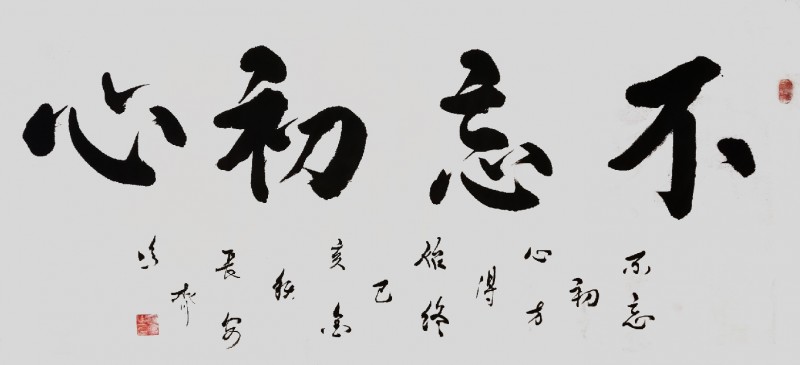 不忘初心
不忘
初
心方
得
始终
己
亥金
秋
長安